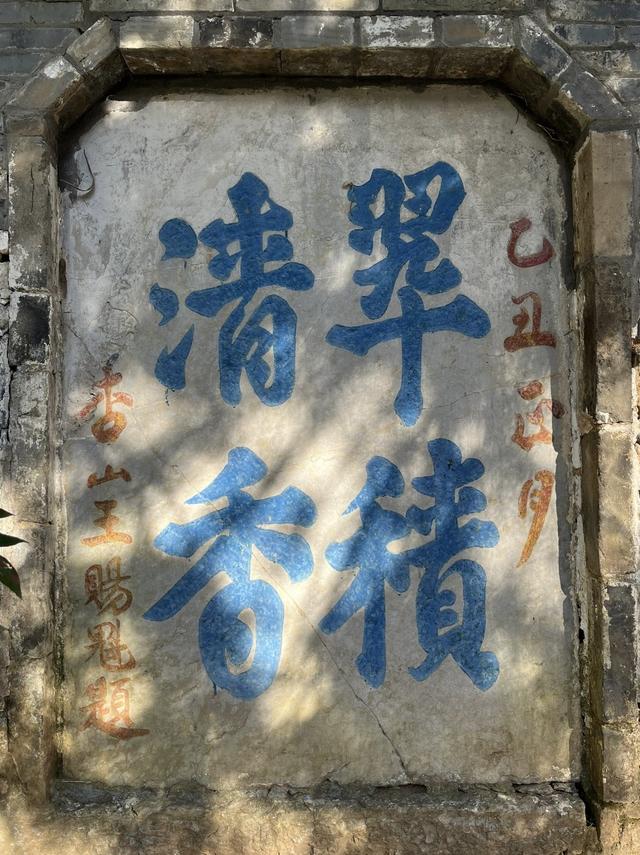 乙丑正月
翠積
清香
香山王賜魁題